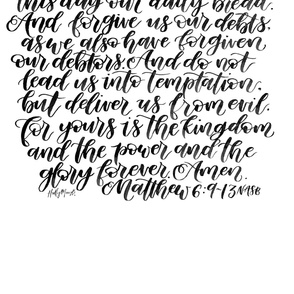 this day our daily bread.
And forgive us our debts,
as we also have forgiven
our debtors. And do not
lead us into temptation,
but deliver us from evil.
For yours is the kingdom
and the power and the
glory forever. Amen.
Matthew 6:9-13 NASB